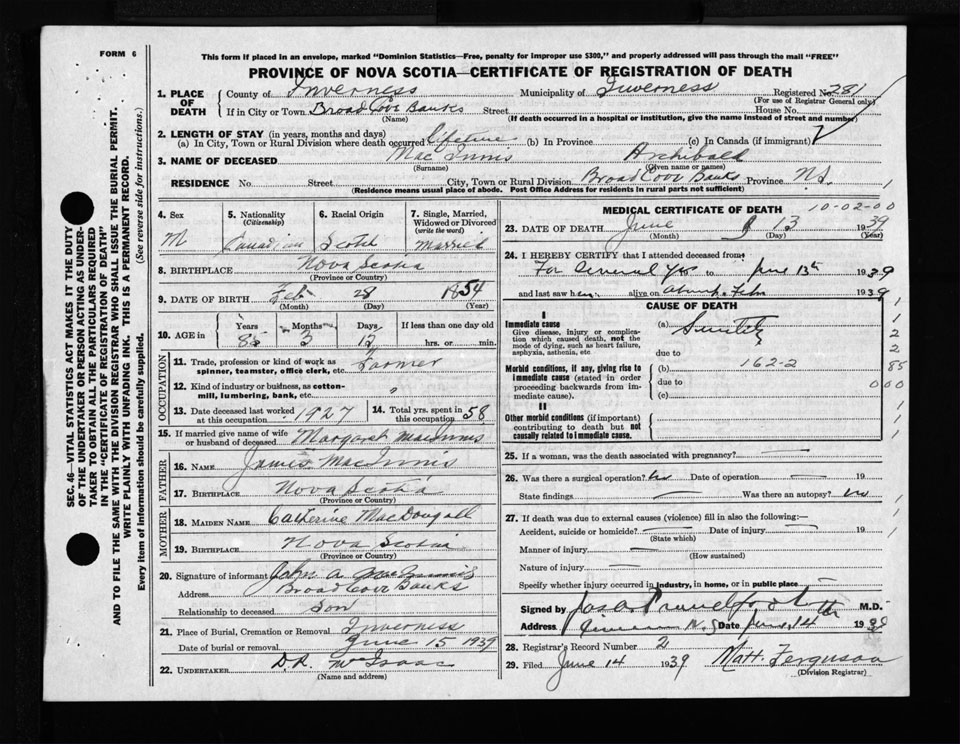 FORM 6
This form if placed in an envelope, marked "Dominion Statistics—Free, penalty for improper use $300," and properly addressed will pass through the mail "FREE"
PROVINCE OF NOVA SCOTIA—CERTIFICATE OF REGISTRATION OF DEATH
SEC. 46—VITAL STATISTICS ACT MAKES IT THE DUTY
OF THE UNDERTAKER OR PERSON ACTING AS UNDER-
TAKER TO OBTAIN ALL THE PARTICULARS REQUIRED
IN THE "CERTIFICATE OF REGISTRATION OF DEATH"
AND TO FILE THE SAME WITH THE DIVISION REGISTRAR WHO SHALL ISSUE THE BURIAL PERMIT.
WRITE PLAINLY WITH UNFADING INK. THIS IS A PERMANENT RECORD.
Every item of information should be carefully supplied. (See reverse side for instructions.)
1. PLACE OF DEATH County of Inverness Municipality of Inverness Registered No. 281
(For use of Registrar General only)
If in City or Town Broad Cove Banks Street House No.
(Name) (If death occurred in a hospital or institution, give the name instead of street and number)
2. LENGTH OF STAY (in years, months and days)
(a) In City, Town or Rural Division where death occurred lifetime (b) In Province (c) In Canada (if immigrant)
3. NAME OF DECEASED Mac Innis Archibald
(Surname) (Given name or names)
RESIDENCE No. Street City, Town or Rural Division Broad Cove Banks Province N.S. 1
(Residence means usual place of abode. Post Office Address for residents in rural parts not sufficient)
4. Sex M
5. Nationality (Citizenship) Canadian
6. Racial Origin Scotch
7. Single, Married, Widowed or Divorced (write the word) Married
8. BIRTHPLACE Nova Scotia
(Province or Country)
9. DATE OF BIRTH Feb 28 1854
(Month) (Day) (Year)
10. AGE in Years 85 Months 3 Days If less than one day
hrs. or min.
OCCUPATION
11. Trade, profession or kind of work as spinner, teamster, office clerk, etc. Farmer
12. Kind of industry or business, as cotton-mill, lumbering, bank, etc. "
13. Date deceased last worked at this occupation 1927
14. Total yrs. spent in this occupation 58
15. If married give name of wife or husband of deceased Margaret MacInnis
FATHER
16. NAME James MacInnis
17. BIRTHPLACE Nova Scotia
(Province or Country)
MOTHER
18. MAIDEN NAME Catherine MacDougall
19. BIRTHPLACE Nova Scotia
(Province or Country)
20. Signature of informant John A MacInnis
Address Broad Cove Banks
Relationship to deceased Son
21. Place of Burial, Cremation or Removal Inverness
Date of burial or removal June 15 1939
22. UNDERTAKER D.R. McIsaac
(Name and address)
MEDICAL CERTIFICATE OF DEATH 10-02-00
23. DATE OF DEATH June 13 1939
(Month) (Day) (Year)
24. I HEREBY CERTIFY that I attended deceased from:
For Several yrs to June 13th 1939
and last saw h alive on about Feb 1939
CAUSE OF DEATH
I
Immediate cause
Give disease, injury or complication which caused death, not the mode of dying, such as heart failure, asphyxia, asthenia, etc
(a) Senility
due to
Morbid conditions, if any, giving rise to immediate cause (stated in order proceeding backwards from immediate cause).
(b) 162-2
due to
(c)
II
Other morbid conditions (if important) contributing to death but not causally related to immediate cause.
1
1
2
2
85
000
1
1
1
25. If a woman, was the death associated with pregnancy? —
26. Was there a surgical operation? No Date of operation — 19
State findings — Was there an autopsy? No
27. If death was due to external causes (violence) fill in also the following:—
Accident, suicide or homicide? — Date of injury — 19
(State which)
Manner of injury —
(How sustained)
Nature of injury —
Specify whether injury occurred in industry, in home, or in public place —
Signed by M.D.
Address Inverness N.S Date June 14 1939
28. Registrar's Record Number 2
29. Filed June 14 1939 Matt. Ferguson
(Division Registrar)